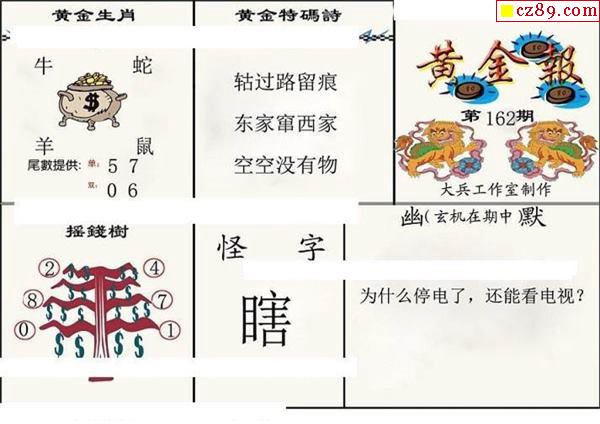 cz89.com
黄金生肖
牛 蛇
羊 鼠
尾數提供: 单: 5 7
双: 0 6
黄金特碼詩
轱过路留痕
东家窜西家
空空没有物
黄金報
第162期
大兵工作室制作
摇錢樹
2 4
8 7
0 1
怪 字
瞎
幽(玄机在期中)默
为什么停电了，还能看电视?